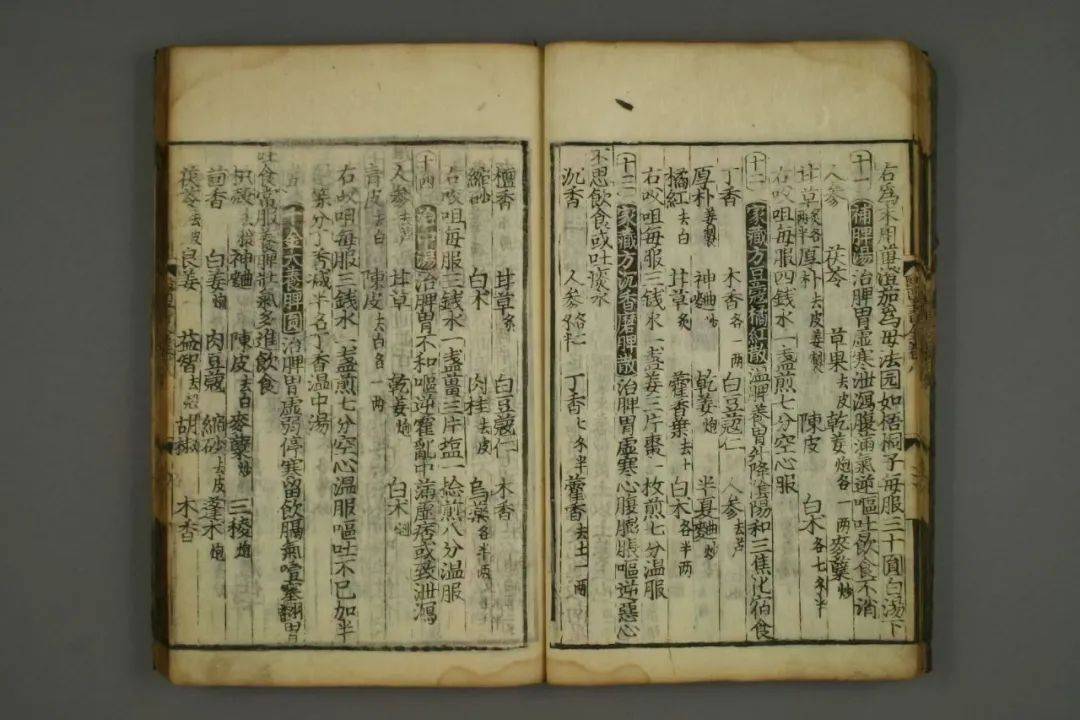 右為末用茴香 為母法园如梧桐子每服三十圓白湯下
十一 補脾湯 治脾胃虛寒泄瀉腹滿氣逆嘔吐飲食不消
人參 茯苓 草果去皮 乾姜炮各一兩 麥櫱炒
甘草炙各一兩半 厚朴去皮姜製 陳皮 白术各七ㄆ半
右㕮咀每服四錢水一盞煎七分空心服
十二 家藏方豆蔻橘紅散 溫脾養胃升降陰陽和三焦化宿食
丁香 木香各一兩 白豆蔻仁 人參去芦
厚朴姜製 神麯炒 乾姜炮 半夏麯炒
橘紅去白 甘草炙 藿香葉去土 白术各半兩
右㕮咀每服三錢水一盞姜三片棗一枚煎七分溫服
十三 家藏方沉香磨脾散 治脾胃虛寒心腹膨脹嘔逆惡心
不思飲食或吐痰水
沉香 人參 丁香七ㄆ半 藿香去土一兩
檀香 甘草炙 白豆蔻仁 木香
縮砂 白术 肉桂去皮 烏藥各半兩
右㕮咀每服三錢水一盞薑三片塩一捻煎八分溫服
十四 治中湯 治脾胃不和嘔逆霍亂中滿虛痞或致泄瀉
人參去 甘草 乾姜炮 白术
青皮去白 陳皮去白各一兩
右㕮咀每服三錢水一盞煎七分空心溫服嘔吐不已加半
等分丁香減半名丁香溫中湯
十全大養脾圓 治脾胃虛弱停寒留飲膈氣噎塞翻胃
吐食常服養脾壯氣多進飲食
枳殼去穰 神麯 陳皮去白 麥櫱炒 三稜炮
茴香 白姜炮 肉豆蔻 縮砂去皮 蓬术炮
茯苓去皮 良姜 益智去殼 胡椒 木香